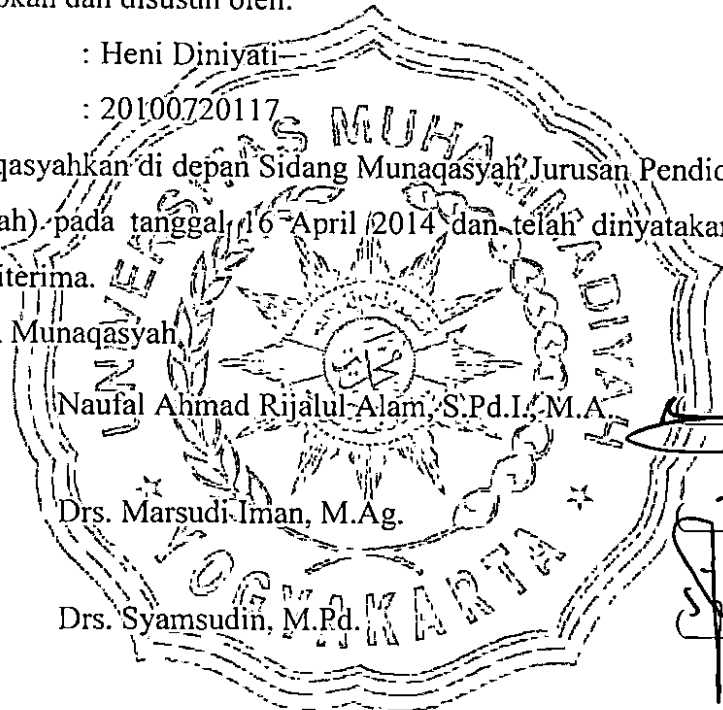 dan disusun oleh:
: Heni Diniyati
: 20100720117
qasyahkan di depan Sidang Munaqasyah Jurusan Pendid
ah) pada tanggal 16 April 2014 dan telah dinyatakan
iterima.
Munaqasyah
Naufal Ahmad Rijalul Alam, S.Pd.I., M.A.
Drs. Marsudi Iman, M.Ag.
Drs. Syamsudin, M.Pd.
UNIVERSITAS MUHAMMADIYAH
YOGYAKARTA